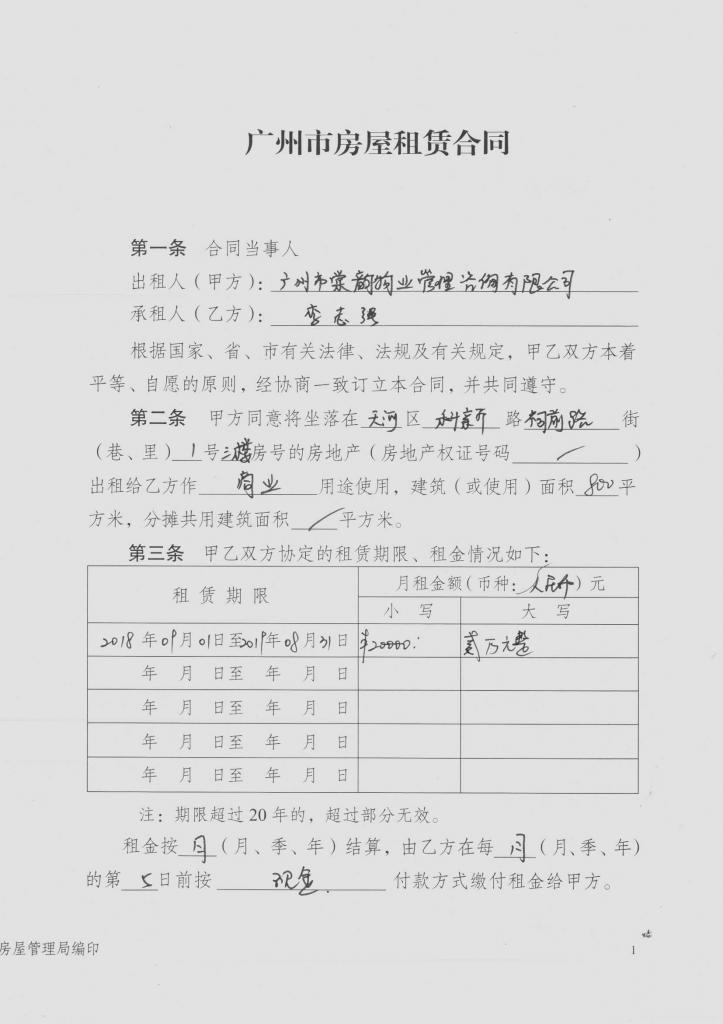 广州市房屋租赁合同
第一条 合同当事人
出租人（甲方）：广州市棠韵物业管理咨询有限公司
承租人（乙方）：李志强
根据国家、省、市有关法律、法规及有关规定，甲乙双方本着
平等、自愿的原则，经协商一致订立本合同，并共同遵守。
第二条 甲方同意将坐落在天河区 路祠前路街
（巷、里）1号三楼房号的房地产（房地产权证号码/）
出租给乙方作商业用途使用，建筑（或使用）面积800平
方米，分摊共用建筑面积/平方米。
第三条 甲乙双方协定的租赁期限、租金情况如下：
租赁期限 月租金额（币种：人民币）元
小写 大写
2018年09月01日至2019年08月31日 ¥20000. 贰万元整
年 月 日至 年 月 日
年 月 日至 年 月 日
年 月 日至 年 月 日
年 月 日至 年 月 日
注：期限超过20年的，超过部分无效。
租金按月（月、季、年）结算，由乙方在每月（月、季、年）
的第5日前按现金付款方式缴付租金给甲方。
房屋管理局编印 1